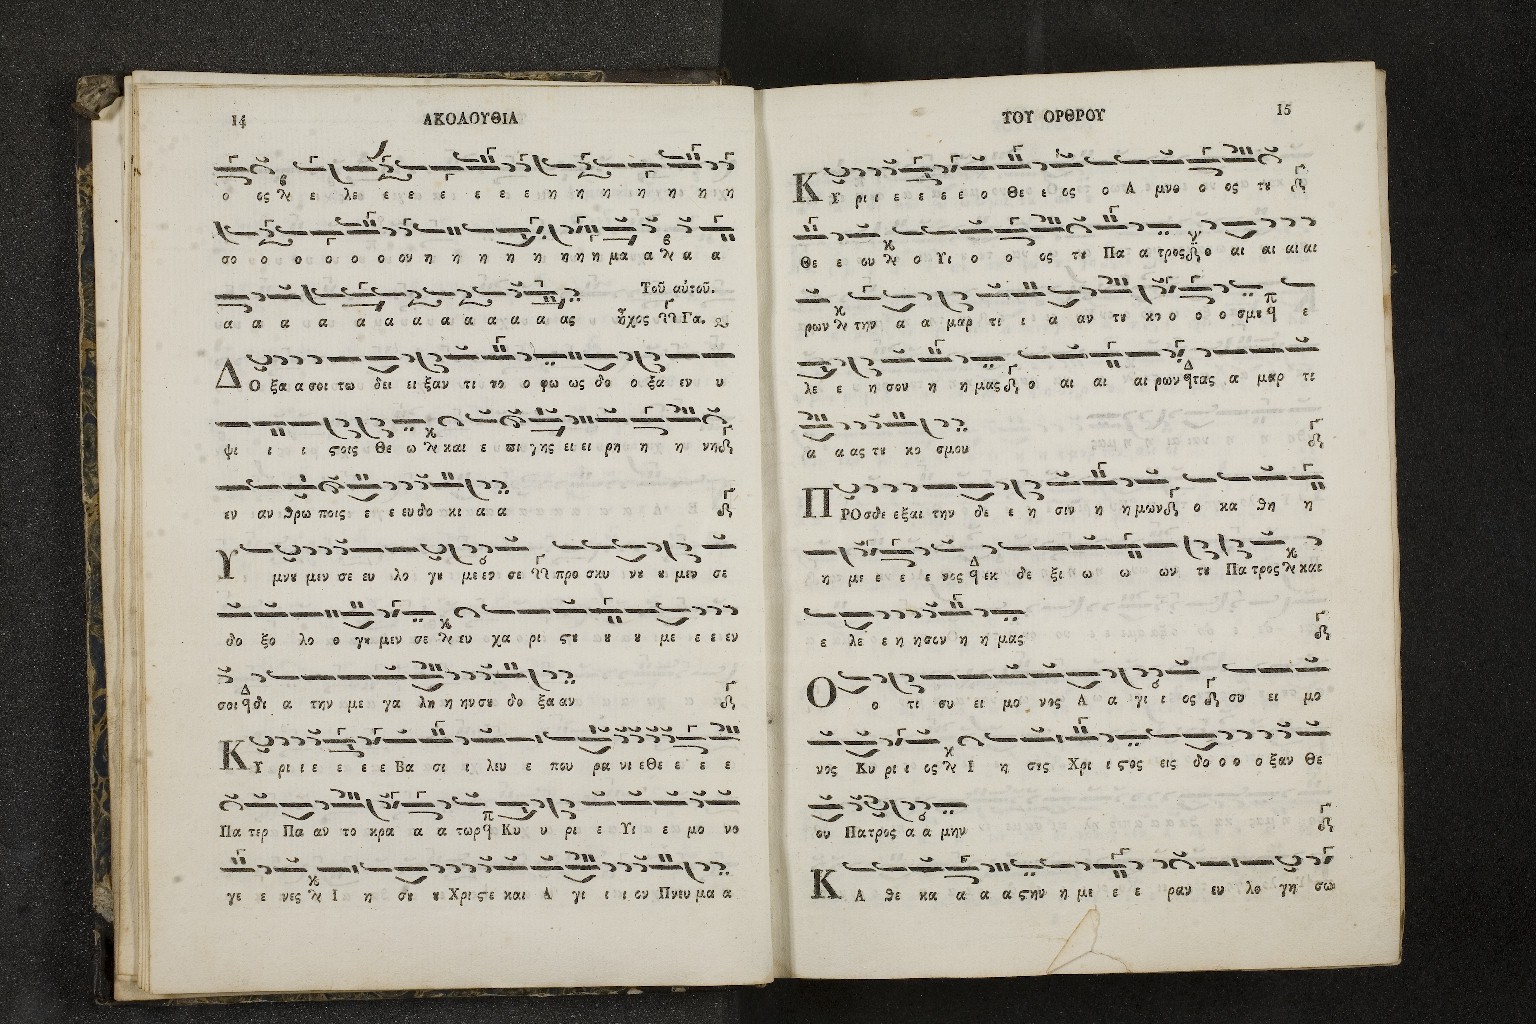 14
ΑΚΟΛΟΥΘΙΑ
ο ος ε λε ε ε ε ε ε ε η η η η η η η
σο ο ο ο ο ο ον η η η η η η η η μα α α α
α α α α α α α α α α α ας
Τοῦ αὐτοῦ.
ἦχος Γα.
ΔΟ ξα α σοι τω δει ει ξαν τι το ο φω ως δο ο ξα εν υ
ψι ι ι ςοις Θε ω και ε πι γης ει ει ρη η η νη
εν αν θρω ποις ε ε ευ δο κι α α
Υ μνου μεν σε ευ λο γου με εν σε προ σκυ νου ου μεν σε
δο ξο λο ο γου μεν σε ευ χα ρι ςου ου ου με ε ε εν
σοι δι α την με γα λη η ην σου δο ξα αν
ΚΥ ρι ι ε ε ε ε Βα σι ι λευ ε που ρα νι ε Θε ε ε ε
Πα τερ Πα αν το κρα α α τωρ Κυ υ ρι ε Υι ε μο νο
γε ε νες Ι η σου ου Χρι ςε και Α γι ι ι ον Πνευ μα α
15
ΤΟΥ ΟΡΘΡΟΥ
ΚΥ ρι ι ε ε ε ε ο Θε ε ος ο Α μνο ο ος του
Θε ε ου ο Υι ο ο ος του Πα α τρος ο αι αι αι αι
ρων την α α μαρ τι ι α αν του κο ο ο ο σμου ε
λε ε η σον η η μας ο αι αι αι ρων τας α μαρ τι
α α ας του κο σμου
ΠΡΟσδε εξαι την δε ε η σιν η η μων ο κα θη η
η με ε ε ε νος εκ δε ξι ω ω ων του Πα τρος και
ε λε ε η η σον η η μας
Ο ο τι συ ει μο νος Α α γι ι ος συ ει μο
νος Κυ ρι ι ος Ι η σους Χρι ι ςος εις δο ο ο οξαν Θε
ου Πατρος α α μην
ΚΑ θε κα α α α ςην η με ε ε ραν ευ λο γη σω